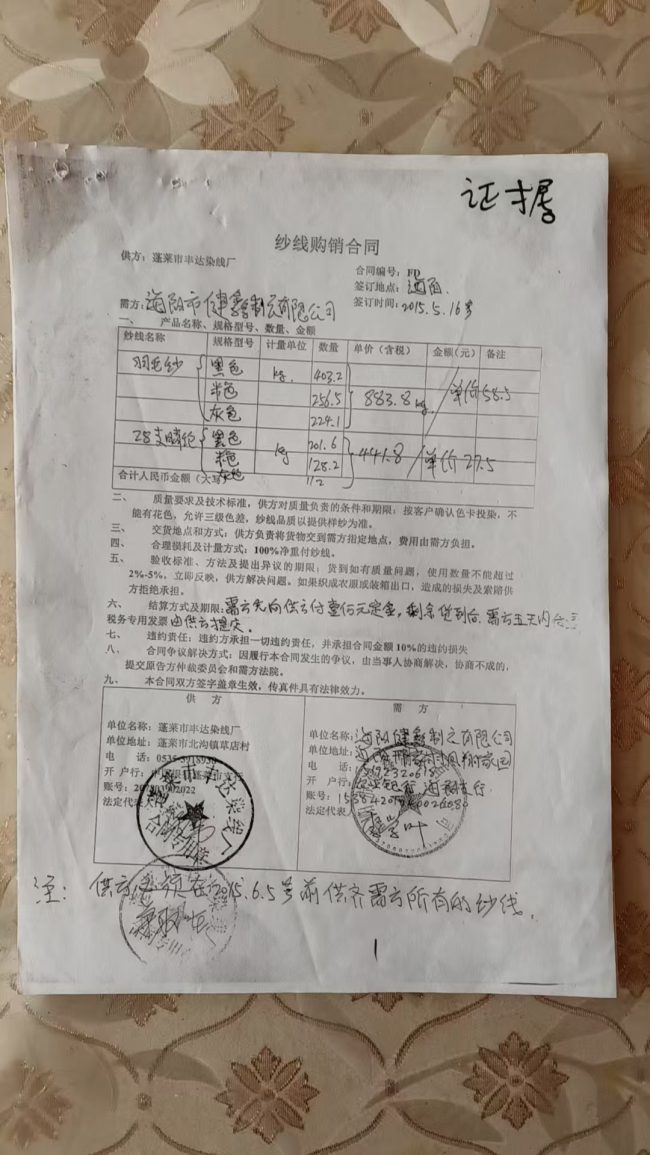 证据
纱线购销合同
供方：蓬莱市丰达染线厂
合同编号：FD
签订地点：海阳
需方：海阳市健鑫制衣有限公司
签订时间：2015.5.16号
一、 产品名称、规格型号、数量、金额
纱线名称 规格型号 计量单位 数量 单价（含税） 金额（元） 备注
羽毛纱 黑色 kg. 403.2
米色 256.5 883.8kg. 单价58.5
灰色 224.1
28支晴纶 黑色 kg 201.6
米色 128.2 441.8 单价27.5
灰色 112
合计人民币金额（大写）
二、 质量要求及技术标准，供方对质量负责的条件和期限：按客户确认色卡投染，不
能有花色，允许三级色差，纱线品质以提供样纱为准。
三、 交货地点和方式：供方负责将货物交到需方指定地点，费用由需方负担。
四、 合理损耗及计量方式：100%净重付纱线。
五、 验收标准、方法及提出异议的期限：货到如有质量问题，使用数量不能超过
2%-5%，立即反映，供方解决问题。如果织成衣服或装箱出口，造成的损失及索赔供
方拒绝承担。
六、 结算方式及期限：需方先向供方付壹仟元定金，剩余货到后，需方五天内
税务专用发票由供方提供。
七、 违约责任：违约方承担一切违约责任，并承担合同金额10%的违约损失
八、 合同争议解决方式：因履行本合同发生的争议，由当事人协商解决，协商不成的，
提交原告方仲裁委员会和需方法院。
九、 本合同双方签字盖章生效，传真件具有法律效力。
供 方
单位名称：蓬莱市丰达染线厂
单位地址：蓬莱市北沟镇草店村
电 话：0535-
开 户 行：
账号：
法定代表人
蓬莱市丰达染线厂
合同专用章
需 方
单位名称：海阳健鑫制衣有限公司
单位地址：
电 话：
开 户 行：
账号：
法定代表人
注：供方必须在2015.6.5号前供齐需方所有的纱线.
1